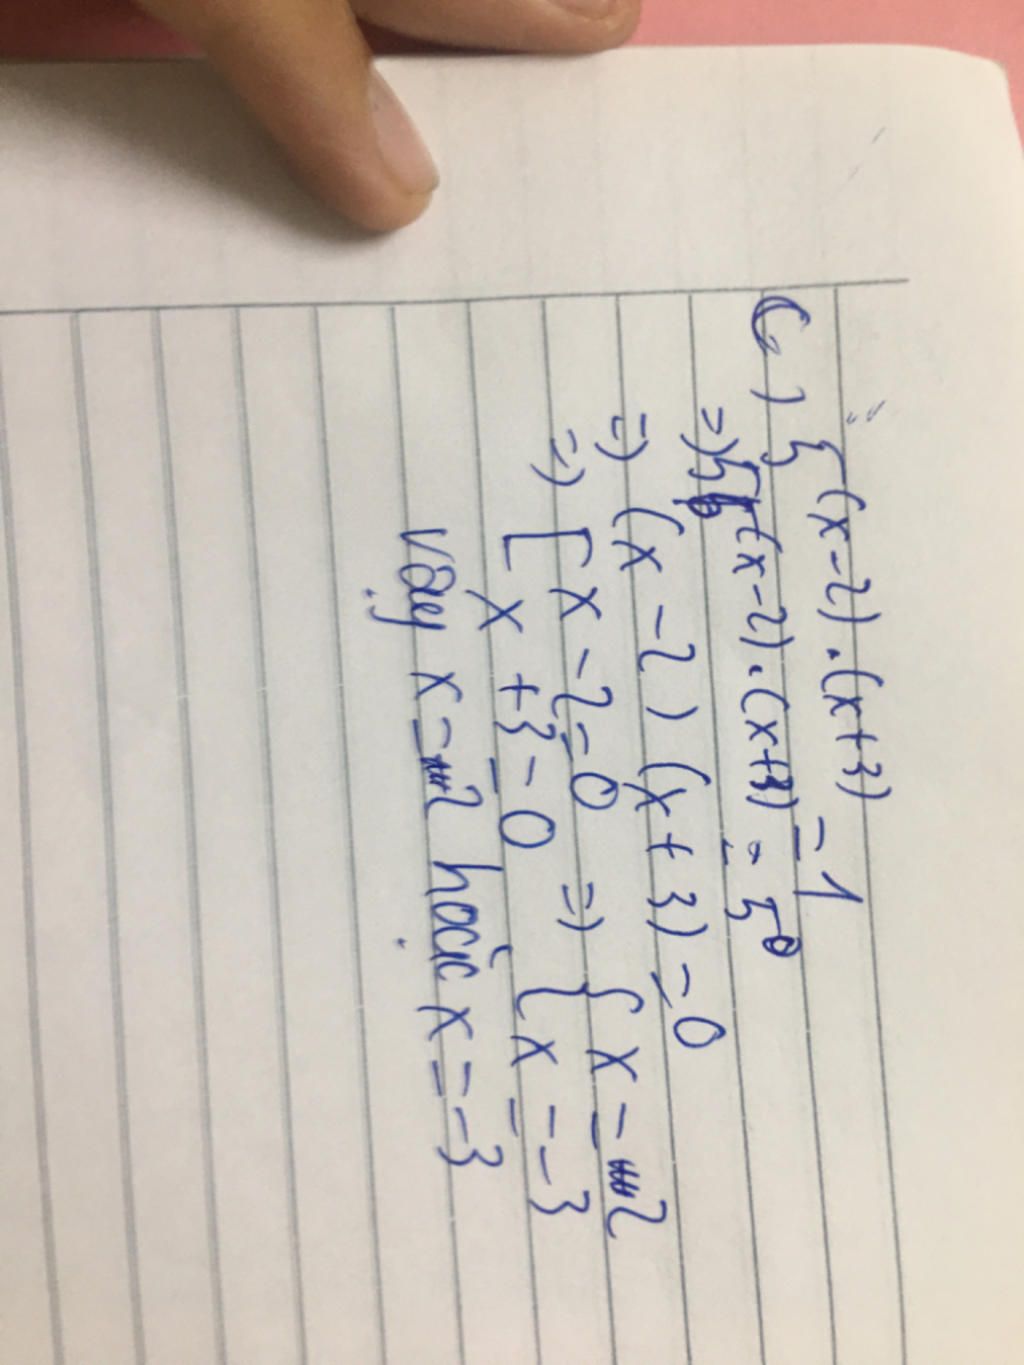 C) 5^(x-2).(x+3) = 1
=) 5^(x-2).(x+3) = 5^0
=) (x-2)(x+3) = 0
=) [ x-2=0 =) { x=2
[ x+3=0 { x=-3
Vậy x=2 hoặc x=-3